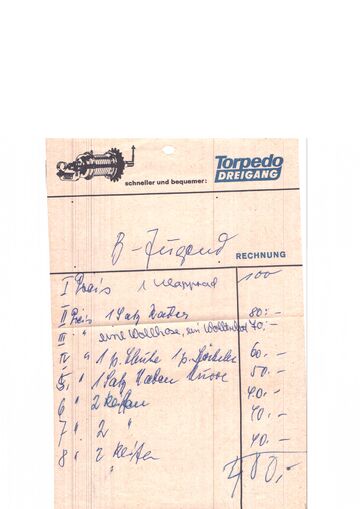 schneller und bequemer:
Torpedo
DREIGANG
B-Jugend
RECHNUNG
I Preis 1 Klapprad 100
II Preis 1 Satz 80:-
III " eine Wollhose, ein 70,-
IV " 1 p. 1 p. 60:-
5. " 1 Satz 50.-
6 " 2 Reifen 40:-
7 " 2 " 40.-
8 " 2 Reifen 40.-
480,-